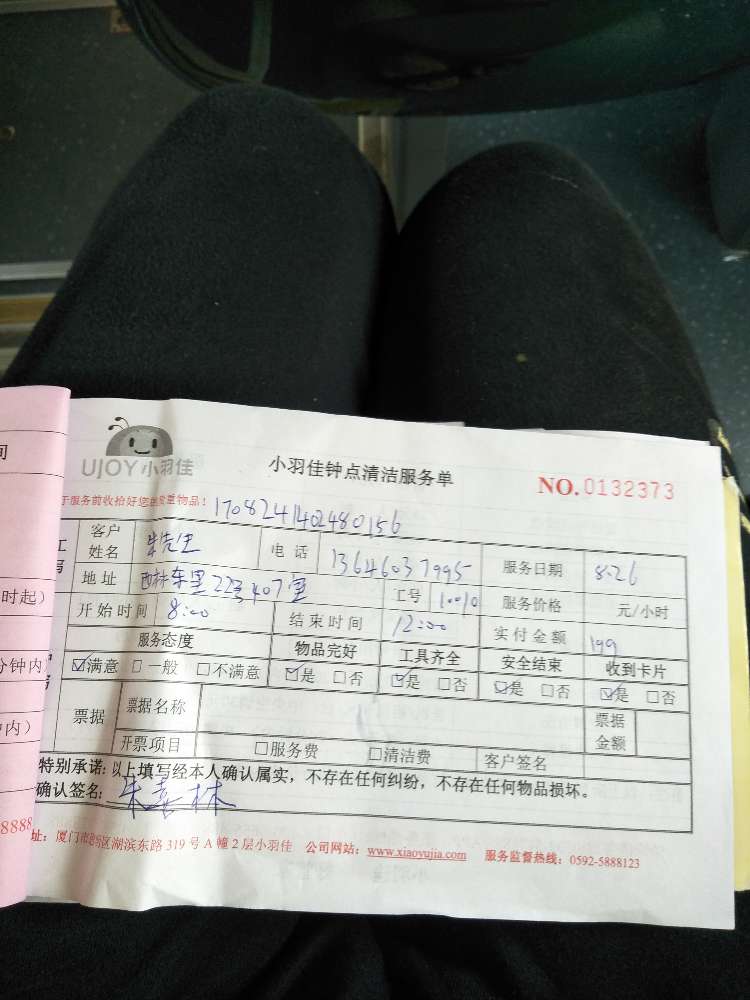 间
时起）
分钟内
中内）
8888
UJOY小羽佳
小羽佳钟点清洁服务单
NO.0132373
于服务前收拾好您的贵重物品！
1708241402480156
客户姓名 朱先生 电话 13646037995 服务日期 8.26
地址 西林东里22号407室 工号 10010 服务价格 元/小时
开始时间 8:00 结束时间 12:00 实付金额 199
服务态度 物品完好 工具齐全 安全结束 收到卡片
☑满意 □一般 □不满意 ☑是 □否 ☑是 □否 ☑是 □否 ☑是 □否
票据 票据名称 票据金额
开票项目 □服务费 □清洁费 客户签名
特别承诺：以上填写经本人确认属实，不存在任何纠纷，不存在任何物品损坏。
确认签名：朱喜林
址：厦门市思明区湖滨东路319号A幢2层小羽佳 公司网站：www.xiaoyujia.com 服务监督热线：0592-5888123